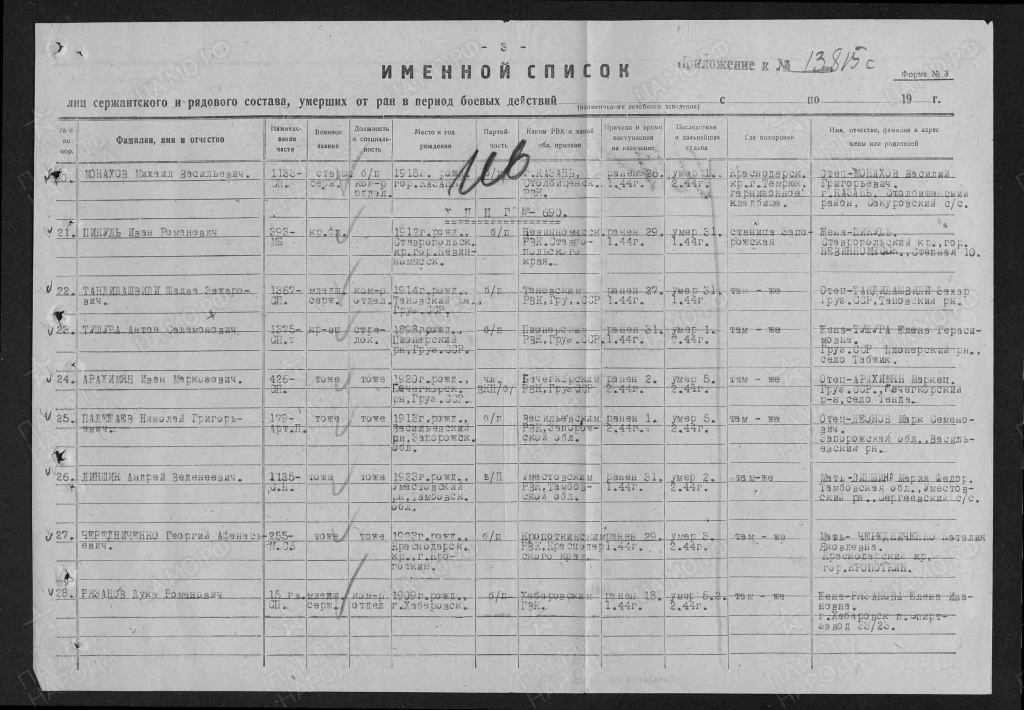 - 3 -
ИМЕННОЙ СПИСОК
Приложение к № 13815 с
Форма № 3
лиц сержантского и рядового состава, умерших от ран в период боевых действий с по 19 г.
(наименование лечебного заведения)
№№ по пор. Фамилия, имя и отчество Наименование части Военное звание Должность и специальность Место и год рождения Партийность Каким РВК и какой обл. призван Причина и время поступления на излечение Последствия и дальнейшая судьба Где похоронен Имя, отчество, фамилия и адрес жены или родителей
20. МОНАХОВ Михаил Васильевич. 1133- старш. б/п 1918г. рожд. г.КАЗАНЬ, ранен 26. умер 1. Краснодарск. Отец-МОНАХОВ Василий
СП. серж. ком-р гор.КАЗАНЬ. Столбищенск. 1.44г. 2.44г. кр.г.Темрюк, Григорьевич.
отдел. РВК. гарнизонное г.КАЗАНЬ, Столбищенский
кладбище. район, Сакуровский с/с.
Х П П Г № 690.
21. ПИКУЛЬ Иван Романович 393- кр.фл. 1912г.рожд., б/п Невинномысск. ранен 29. умер 31. станица Запо- Жена-ПИКУЛЬ.
МБ Ставропольск. РВК.Ставро- 1.44г. 1.44г. рожская Ставропольский кр.,гор.
кр.гор.Невин- польского НЕВИННОМЫССК.,Степная 10.
номысск. края.
22. ТАНДИЛАШВИЛИ Шалва Захаро- 1367- младш. ком-р 1914г.рожд., б/п Тановским ранен 27. умер 31. там - же Отец-ТАНДИЛАШВИЛИ Захар
вич. СП. серж. отдел. Тановский рн., РВК,Гру,.ССР 1.44г. 1.44г. Груз.ССР,Тановский рн.
Груз.ССР.
23. ТУШУРА Антон Соломонович. 1375- кр-ец стре- 1898г.рожд., б/п Пионерским ранен 31. умер 1. там - же Жена-ТУШУРА Елена Гераси-
СП.т лок. Пионерский РВК,Груз.ССР. 1.44г. 2.44г. мовна.
рн,Груз.ССР. Груз.ССР Пионерский рн.,
село Табжик.
24. АРАХИМЯН Иван Маркозович. 426- тоже тоже 1920г.рожд., чл. Бечегкорским ранен 2. умер 5. там - же Отец-АРАХИМЯН Маркец.
СП. Бечегкорск. ВКП/б/ РВК,Груз.ССР 2.44г. 2.44г. Груз.ССР.,Гечегкорский
рн,Груз.ССР. р-н,село Генда.
25. Николай Григорь- 179- тоже тоже 1913г.рожд. б/п Васильевским ранен 1. умер 5. там - же Отец-ЛЕОНОВ Марк Семено-
евич. Арт.П. Васильевский РВК,Запорож- 2.44г. 2.44г. вич.
рн,Запорожск. ской обл. Запорожская обл.,Василь-
обл. евский рн.
26. ЛИПШИН Андрей Веденеевич. 1135- тоже тоже 1923г.рожд., в/П Уместовским ранен 31. умер 2. там-же Мать-ЛИПШИНА Мария Федор.
С.П. Уместовский РВК,Тамбов- 1.44г. 2.44г. Тамбовская обл.,Уместов-
рн,Тамбовск. ской обл. ский рн.,Сергеевский с/с.
обл.
27. ЧЕРЕДНИЧЕНКО Георгий Афанась- 255- тоже тоже 1923г.рожд., б/п Кропоткинским ранен 29. умер 3. там - же Мать- ЧЕРЕДНИЧЕНКО Наталия
евич. М.СБ Краснодарск. РВК,Краснодар 1.44г. 2.44г. Яковлевна.
кр.,г.Кро- ского края. Краснодарский кр,
поткин. гор.КРОПОТКИН.
28. РЯЗАНОВ Лука Романович 15 гв. младш. ком-р 1909г.рожд., б/п Хабаровским ранен 18. умер 5.2. там - же Жена-РЯЗАНОВА Елена Ива-
СП. серж. отдел г.Хабаровск. РВК. 1.44г. 2.44г. новна.
г.Хабаровск п.Спирт-
завод 33/23.